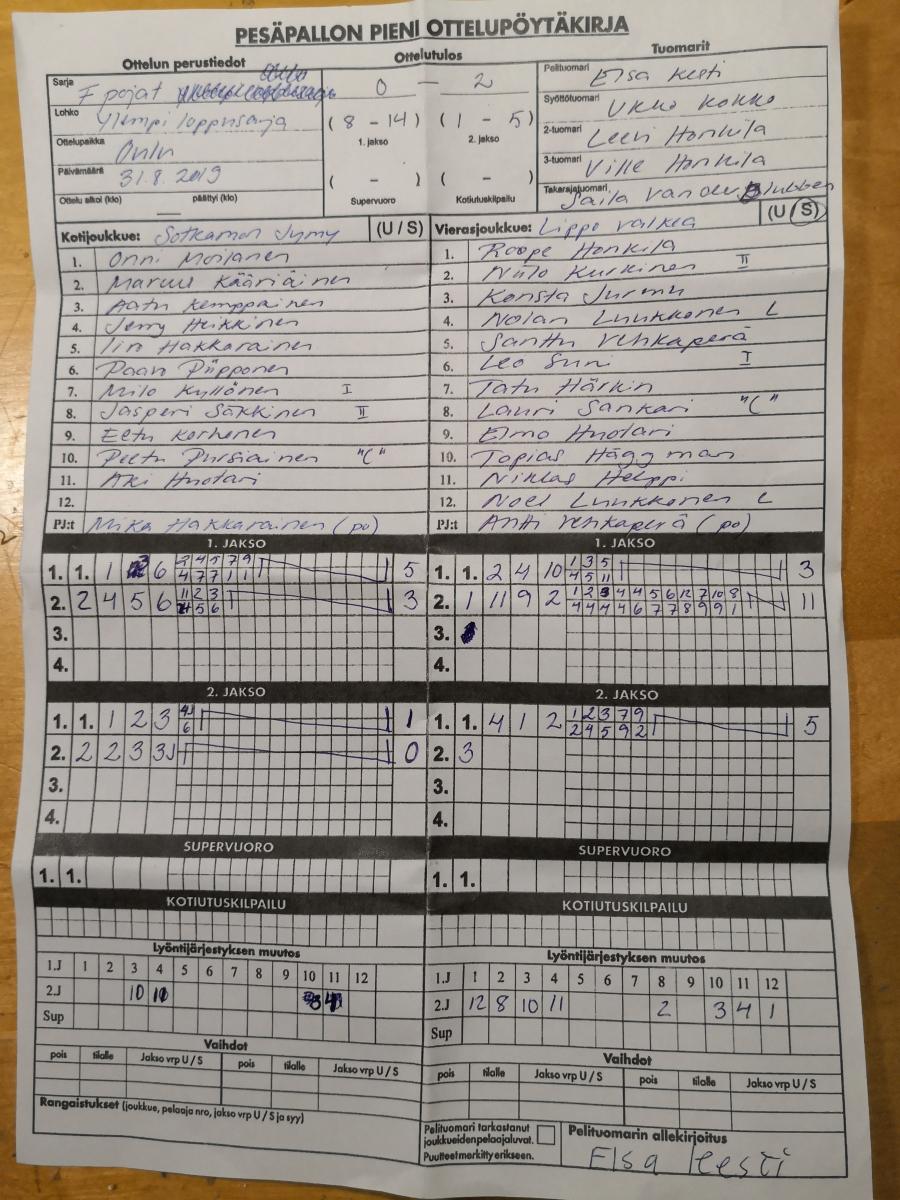 PESÄPALLON PIENI OTTELUPÖYTÄKIRJA
Ottelun perustiedot
Ottelutulos
Tuomarit
Sarja F pojat
0 - 2
Pelituomari Elsa Kesti
Lohko Ylempi loppusarja
(8 - 14) (1 - 5)
1. jakso 2. jakso
Syöttötuomari Ukko Kokko
Ottelupaikka Oulu
2-tuomari Leevi Honkila
Päivämäärä 31.8.2019
( - ) ( - )
Supervuoro Kotiutuskilpailu
3-tuomari Ville Honkila
Ottelu alkoi (klo) päättyi (klo)
Takarajatuomari Saila Vander
Kotijoukkue: Sotkamon Jymy (U / S)
1. Onni Moilanen
2. Marcus Kääriäinen
3. Aatu Kemppainen
4. Jemy Heikkinen
5. Iiro Hakkarainen
6. Paavo Piipponen
7. Milo Kyllönen I
8. Jasperi Säkkinen II
9. Eetu Korhonen
10. Peetu Pursiainen "C"
11. Aki Huotari
12.
PJ:t Mika Hakkarainen (po)
Vierasjoukkue: Lippo valkea (U / S)
1. Roope Honkila
2. Niilo Kurkinen II
3. Konsta Jurmu
4. Nolan Luukkonen L
5. Santtu Vehkaperä
6. Leo Suni I
7. Tatu Härkin
8. Lauri Sankari "C"
9. Elmo Huotari
10. Topias Häggman
11. Niklas Helppi
12. Noel Luukkonen L
PJ:t Antti Vehkaperä (po)
1. JAKSO
1. 1. 1 6 2 4 5 7 9 5
4 7 7 1 1
2. 2 4 5 6 11 2 3 3
4 5 6
3.
4.
1. JAKSO
1. 1. 2 4 10 1 3 5 3
4 5 11
2. 1 11 9 2 1 2 3 4 4 5 6 12 7 10 8 11
4 4 4 4 6 7 7 8 9 9 1
3.
4.
2. JAKSO
1. 1. 1 2 3 4 1
6
2. 2 2 3 3 0
3.
4.
2. JAKSO
1. 1. 4 1 2 1 2 3 7 9 5
2 4 5 9 2
2. 3
3.
4.
SUPERVUORO
1. 1.
SUPERVUORO
1. 1.
KOTIUTUSKILPAILU
KOTIUTUSKILPAILU
Lyöntijärjestyksen muutos
1.J 1 2 3 4 5 6 7 8 9 10 11 12
2.J 10 3 4
Sup
Lyöntijärjestyksen muutos
1.J 1 2 3 4 5 6 7 8 9 10 11 12
2.J 12 8 10 11 2 3 4 1
Sup
Vaihdot
pois tilalle Jakso vrp U / S pois tilalle Jakso vrp U / S
Vaihdot
pois tilalle Jakso vrp U / S pois tilalle Jakso vrp U / S
Rangaistukset (joukkue, pelaaja nro, jakso vrp U / S ja syy)
Pelituomari tarkastanut
joukkueiden pelaajaluvat.
Puutteet merkitty erikseen.
Pelituomarin allekirjoitus
Elsa Keesti